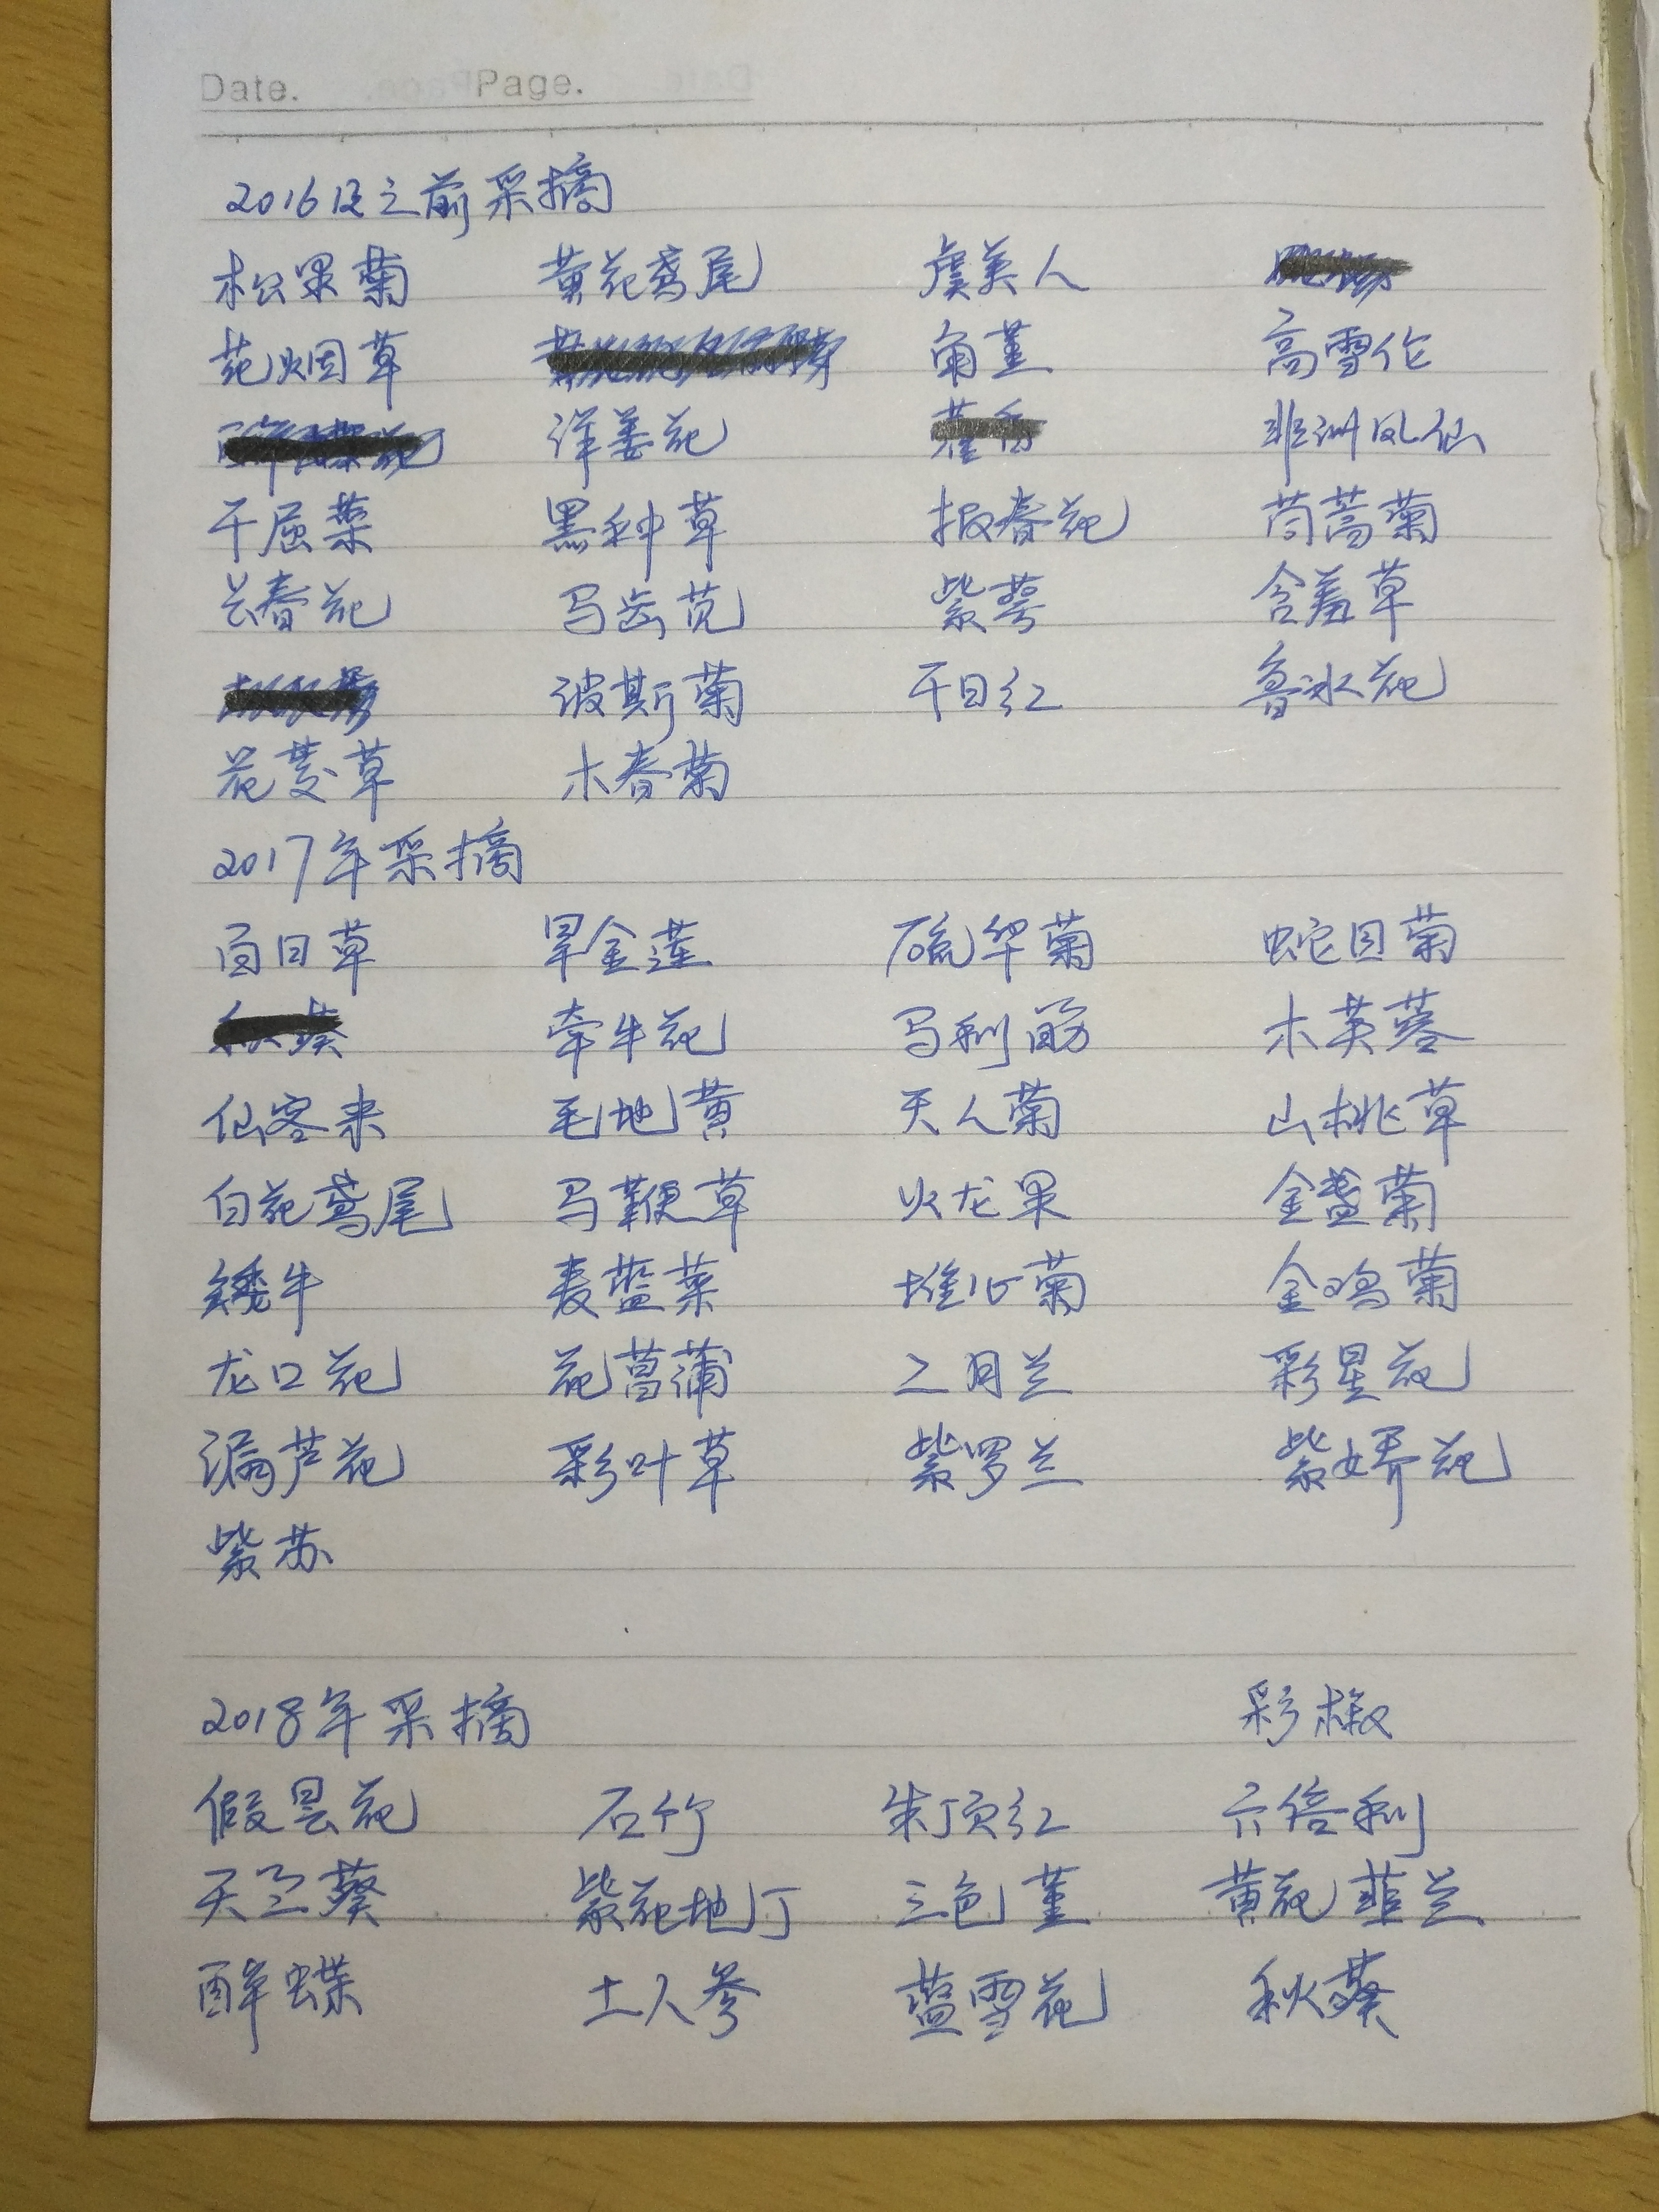 Date. Page.
2016及之前采摘
松果菊 黄花鸢尾 虞美人
花烟草 角堇 高雪伦
洋姜花 藿香 非洲凤仙
千屈菜 黑种草 报春花 茼蒿菊
长春花 马齿苋 紫萼 含羞草
波斯菊 千日红 鲁冰花
花菱草 木春菊
2017年采摘
百日草 旱金莲 硫华菊 蛇目菊
秋葵 牵牛花 马利筋 木芙蓉
仙客来 毛地黄 天人菊 山桃草
白花鸢尾 马鞭草 火龙果 金盏菊
矮牛 麦蓝菜 堆心菊 金鸡菊
龙口花 花菖蒲 二月兰 彩星花
漏芦花 彩叶草 紫罗兰 紫娇花
紫苏
2018年采摘 彩椒
假昙花 石竹 朱顶红 六倍利
天竺葵 紫花地丁 三色堇 黄花韭兰
醉蝶 土人参 蓝雪花 秋葵